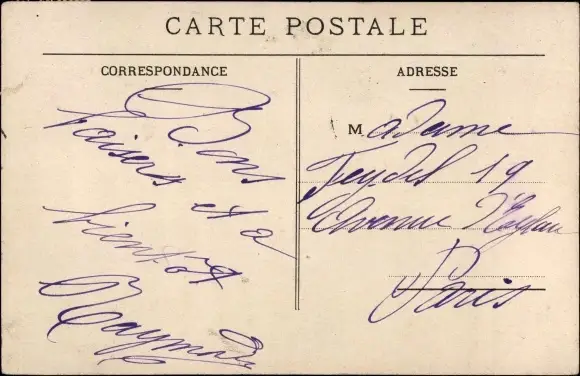 CARTE POSTALE
CORRESPONDANCE
Bons
baisers et a
bientôt
Raymond
ADRESSE
Madame
19
Avenue d'Eylau
Paris